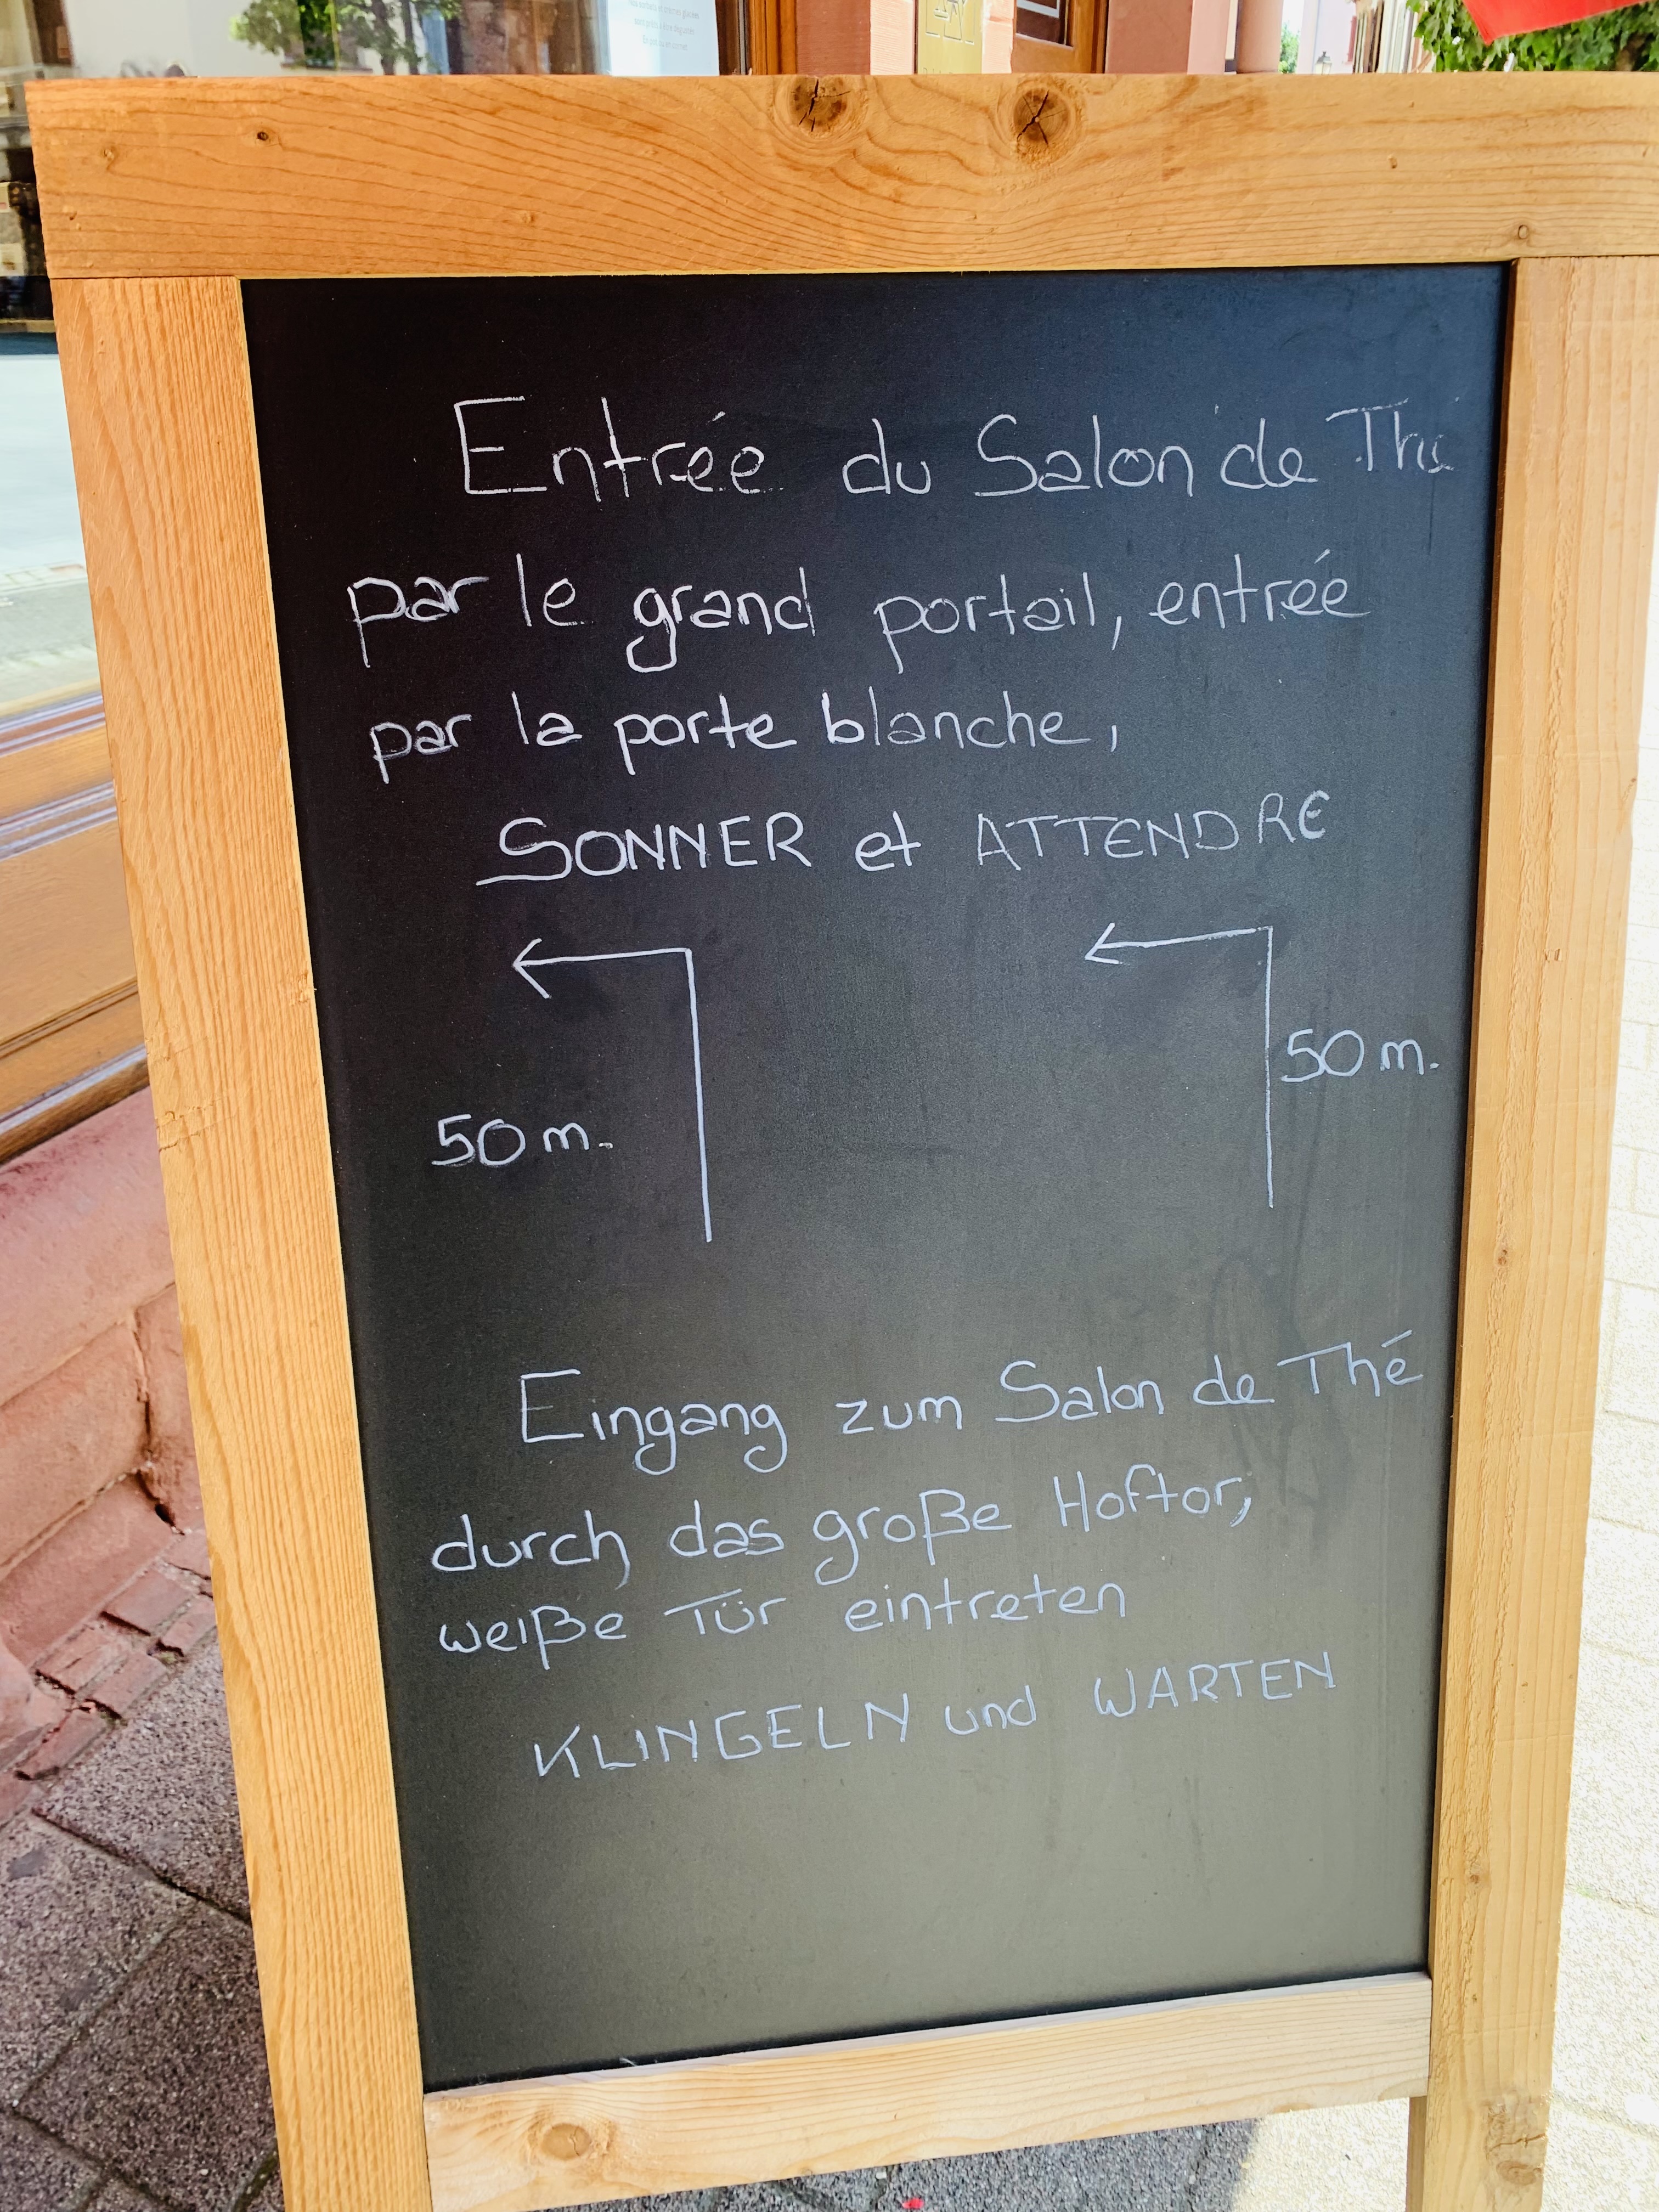 Entrée du Salon de Thé
par le grand portail, entrée
par la porte blanche,
SONNER et ATTENDRE
50 m.
50 m.
Eingang zum Salon de Thé
durch das große Hoftor,
weiße Tür eintreten
KLINGELN und WARTEN